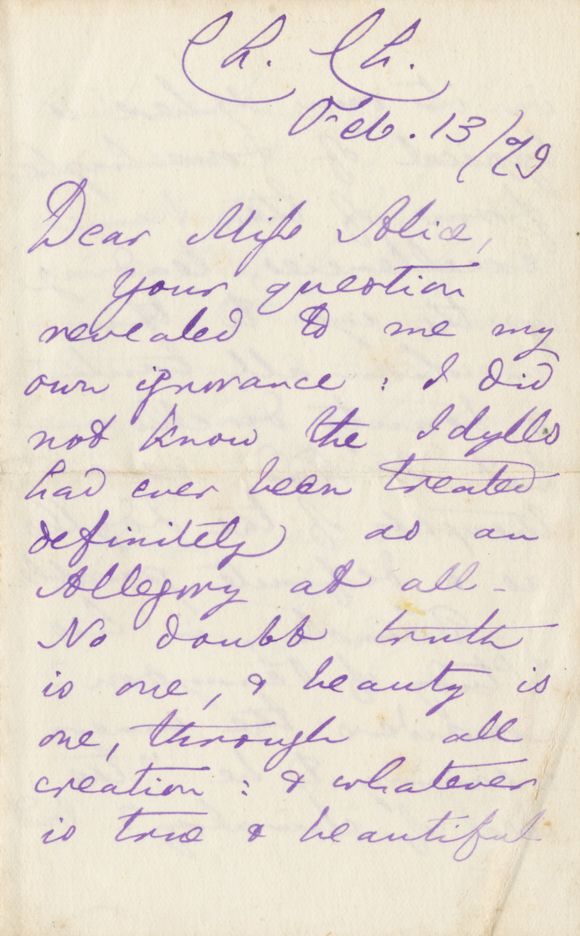 Ch. Ch.
Feb. 13/79
Dear Miss Alice,
Your question
revealed to me my
own ignorance : I did
not know the Idylls
had ever been treated
definitely as an
Allegory at all -
No doubt truth
is one, & beauty is
one, through all
creation : & whatever
is true & beautiful